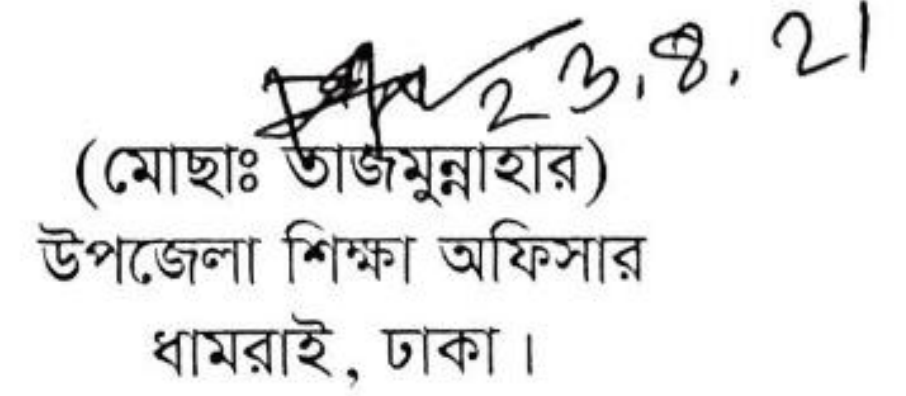 23.8.21
(মোছাঃ তাজমুন্নাহার)
উপজেলা শিক্ষা অফিসার
ধামরাই, ঢাকা।